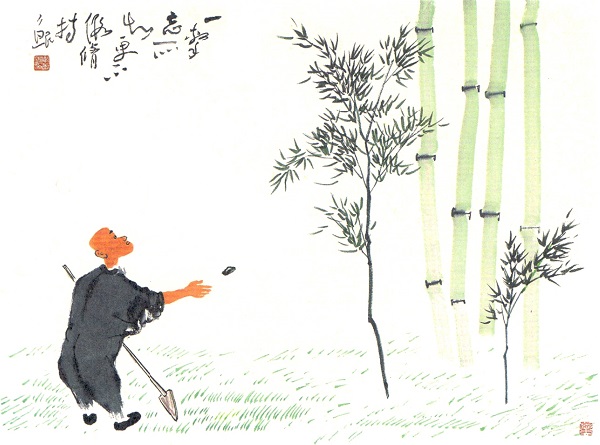 一擊
忘所
知更不
假修
持